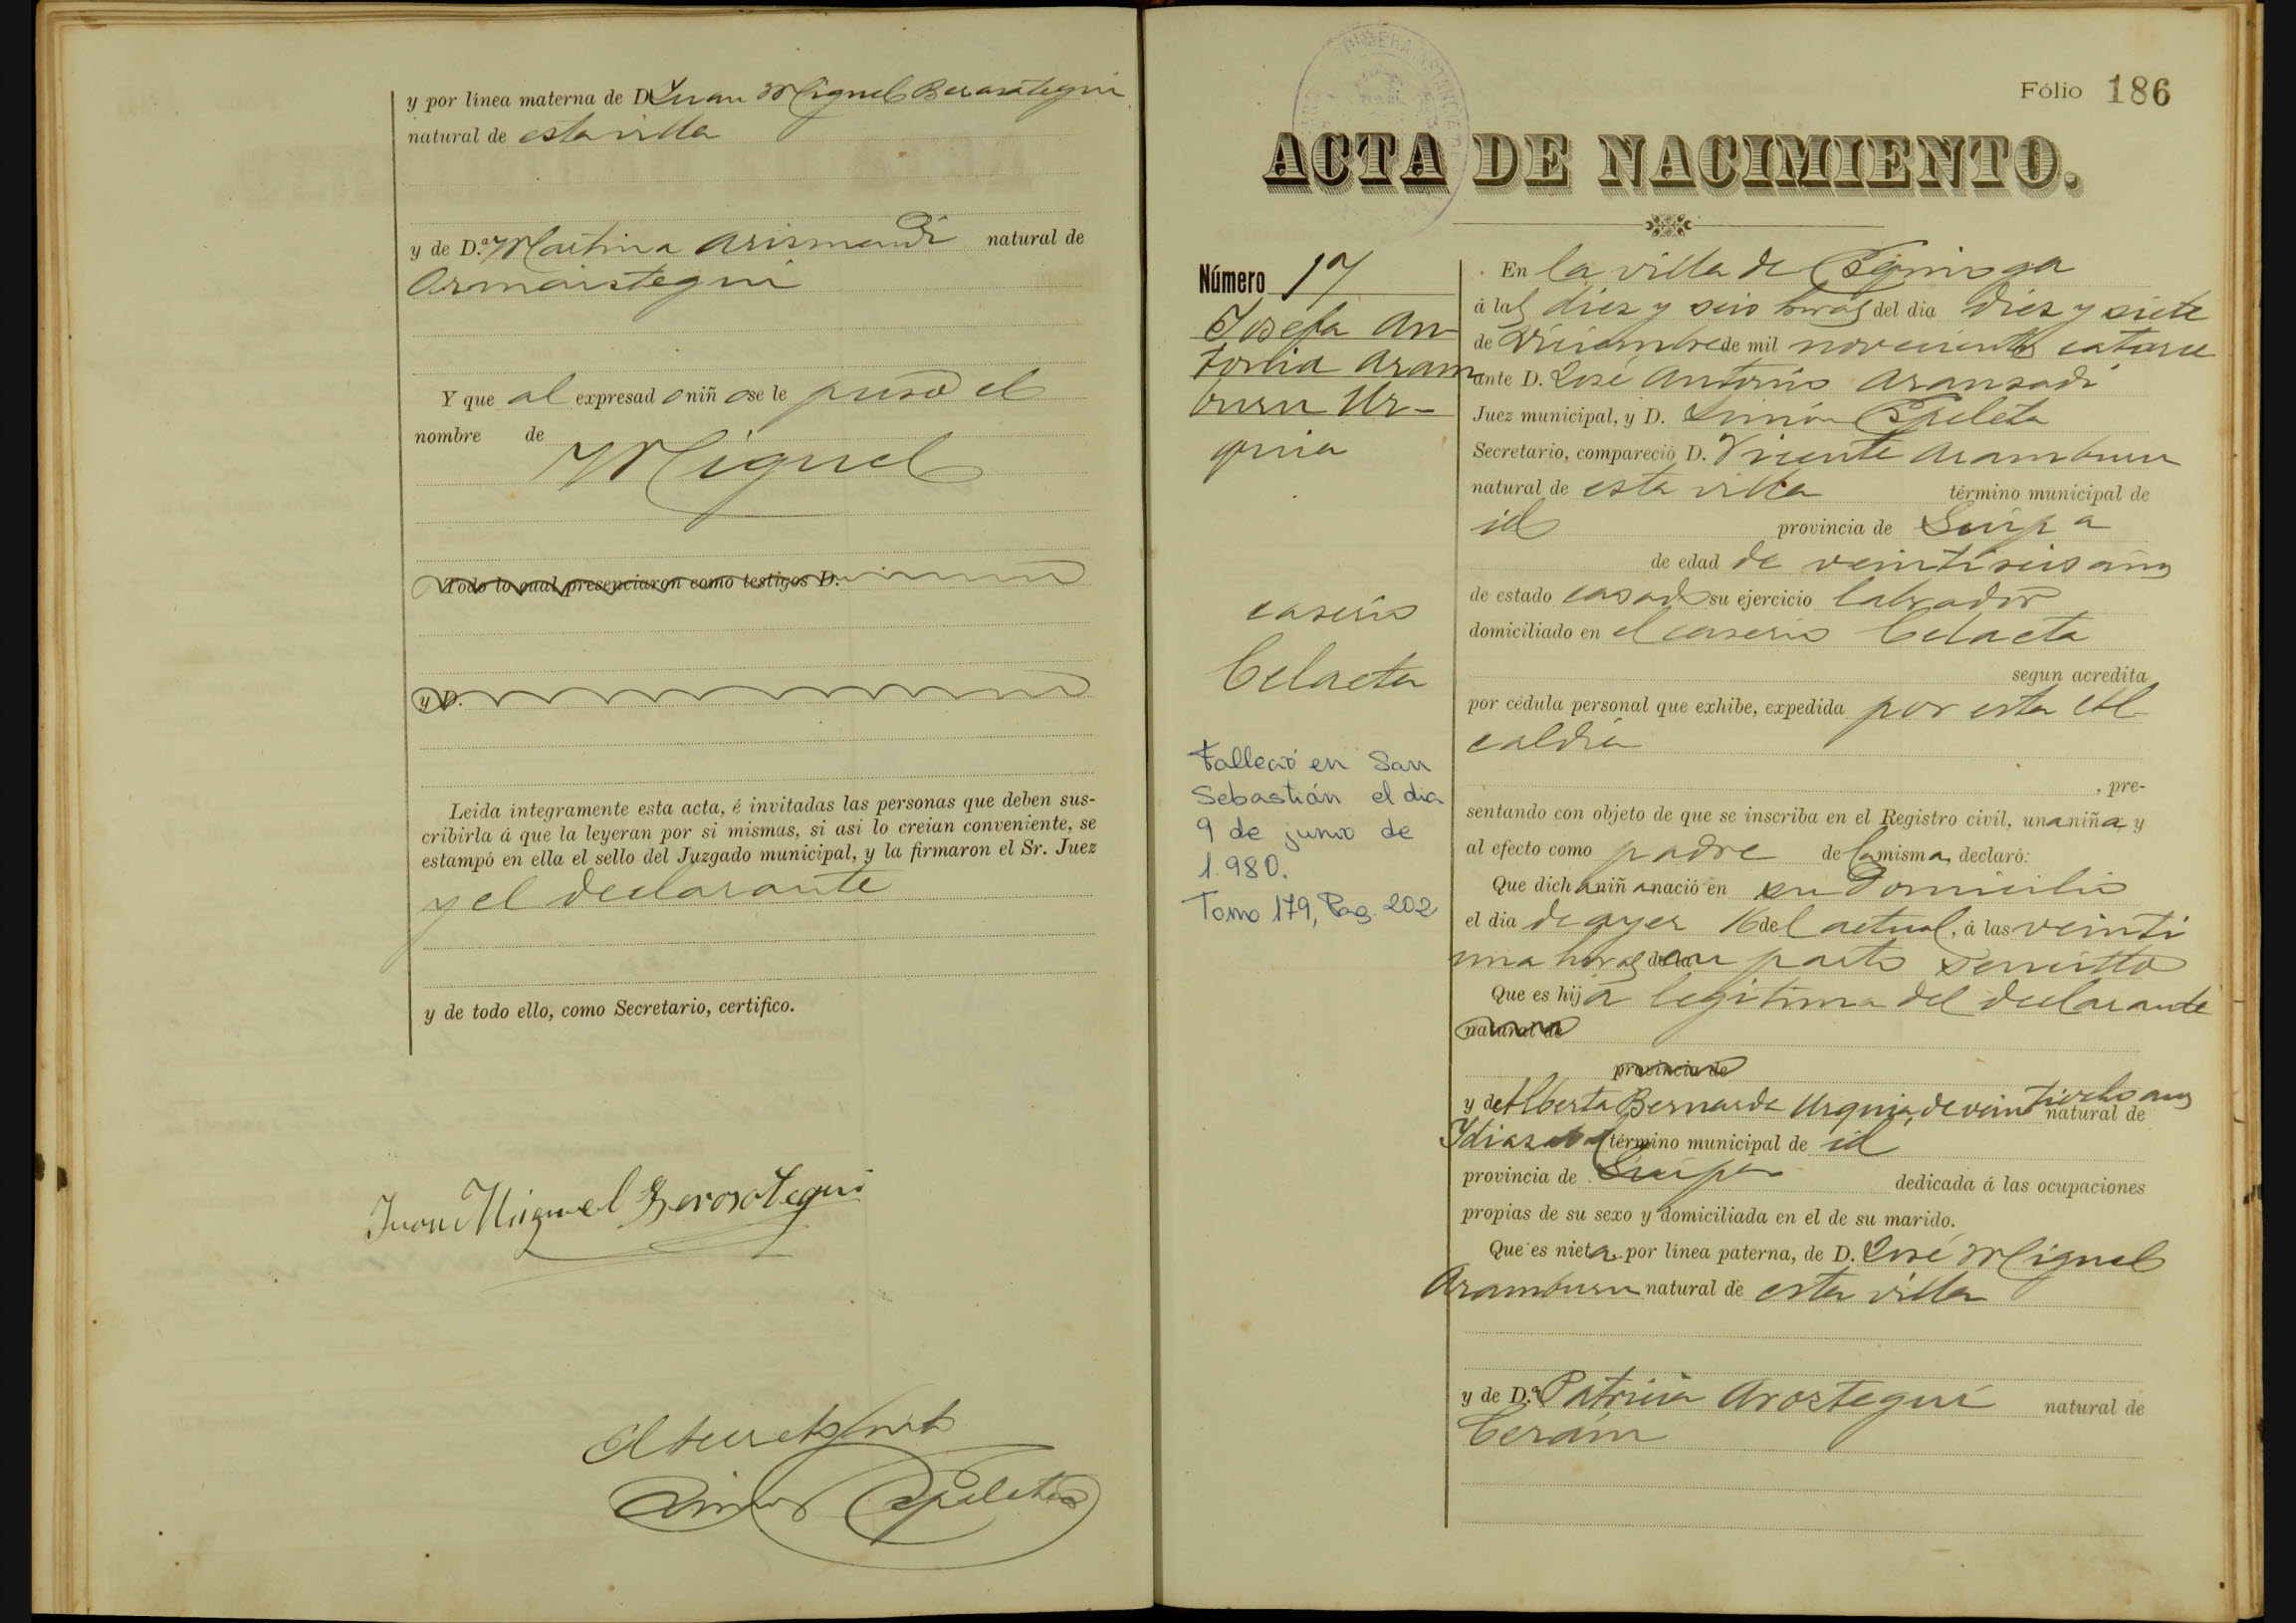 y por línea materna de D. Juan Miguel Berasategui
natural de esta villa
y de D.ª Martina Arismendi natural de
Ormaistegui
Y que al expresado niño se le puso el
nombre de
Miguel
Todo lo cual presenciaron como testigos D.
y D.
Leida íntegramente esta acta, é invitadas las personas que deben sus-
cribirla á que la leyeran por si mismas, si asi lo creian conveniente, se
estampó en ella el sello del Juzgado municipal, y la firmaron el Sr. Juez
y el declarante
y de todo ello, como Secretario, certifico.
Juan Miguel Berasategui
Simon Espeleta
Fólio 186
ACTA DE NACIMIENTO.
Número 17
Josefa An-
tonia Aram
buru Ur-
quia
caserio
Celaeta
Falleció en San
Sebastián el dia
9 de junio de
1.980.
Tomo 179, Pag. 202
En la villa de
á las diez y seis horas del dia diez y siete
de Diciembre de mil novecientos catorce
ante D. José Antonio Aransadi
Juez municipal, y D. Simón Espeleta
Secretario, compareció D. Vicente Aramburu
natural de esta villa término municipal de
id provincia de Guipa
de edad de veintiseis años
de estado casado su ejercicio labrador
domiciliado en el caserio Celaeta
segun acredita
por cédula personal que exhibe, expedida por esta Al-
caldia
, pre-
sentando con objeto de que se inscriba en el Registro civil, una niña y
al efecto como padre de la misma, declaró:
Que dicha niña nació en su domicilio
el dia de ayer 16 del actual, á las veinti
una horas en parto sencillo
Que es hija legitima del declarante
natural de
provincia de
y de Alberta Bernarda Urquia, de veintiocho años natural de
Ydiazabal término municipal de id
provincia de Guipa dedicada á las ocupaciones
propias de su sexo y domiciliada en el de su marido.
Que es nieta por línea paterna, de D. José Miguel
Aramburu natural de esta villa
y de D.ª Patricia Arostegui natural de
Cerain